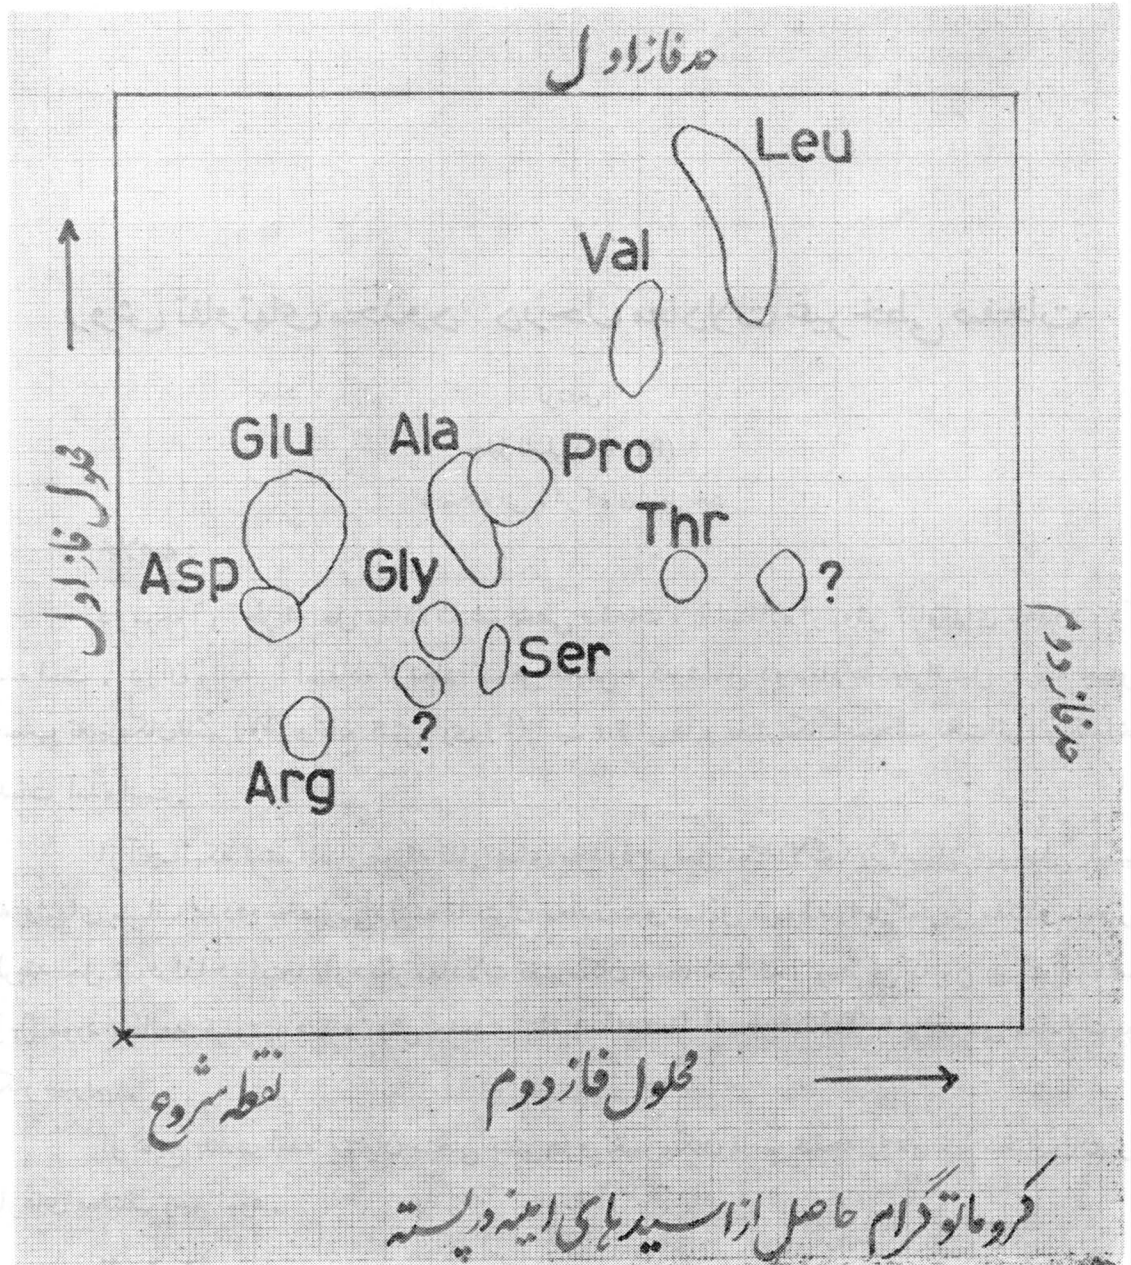 حد فاز اول
Leu
Val
Glu
Ala
Pro
Thr
Asp
Gly
?
Ser
?
Arg
محلول فاز اول
حد فاز دوم
نقطه شروع
محلول فاز دوم
کروماتوگرام حاصل از اسیدهای امینه در پسته